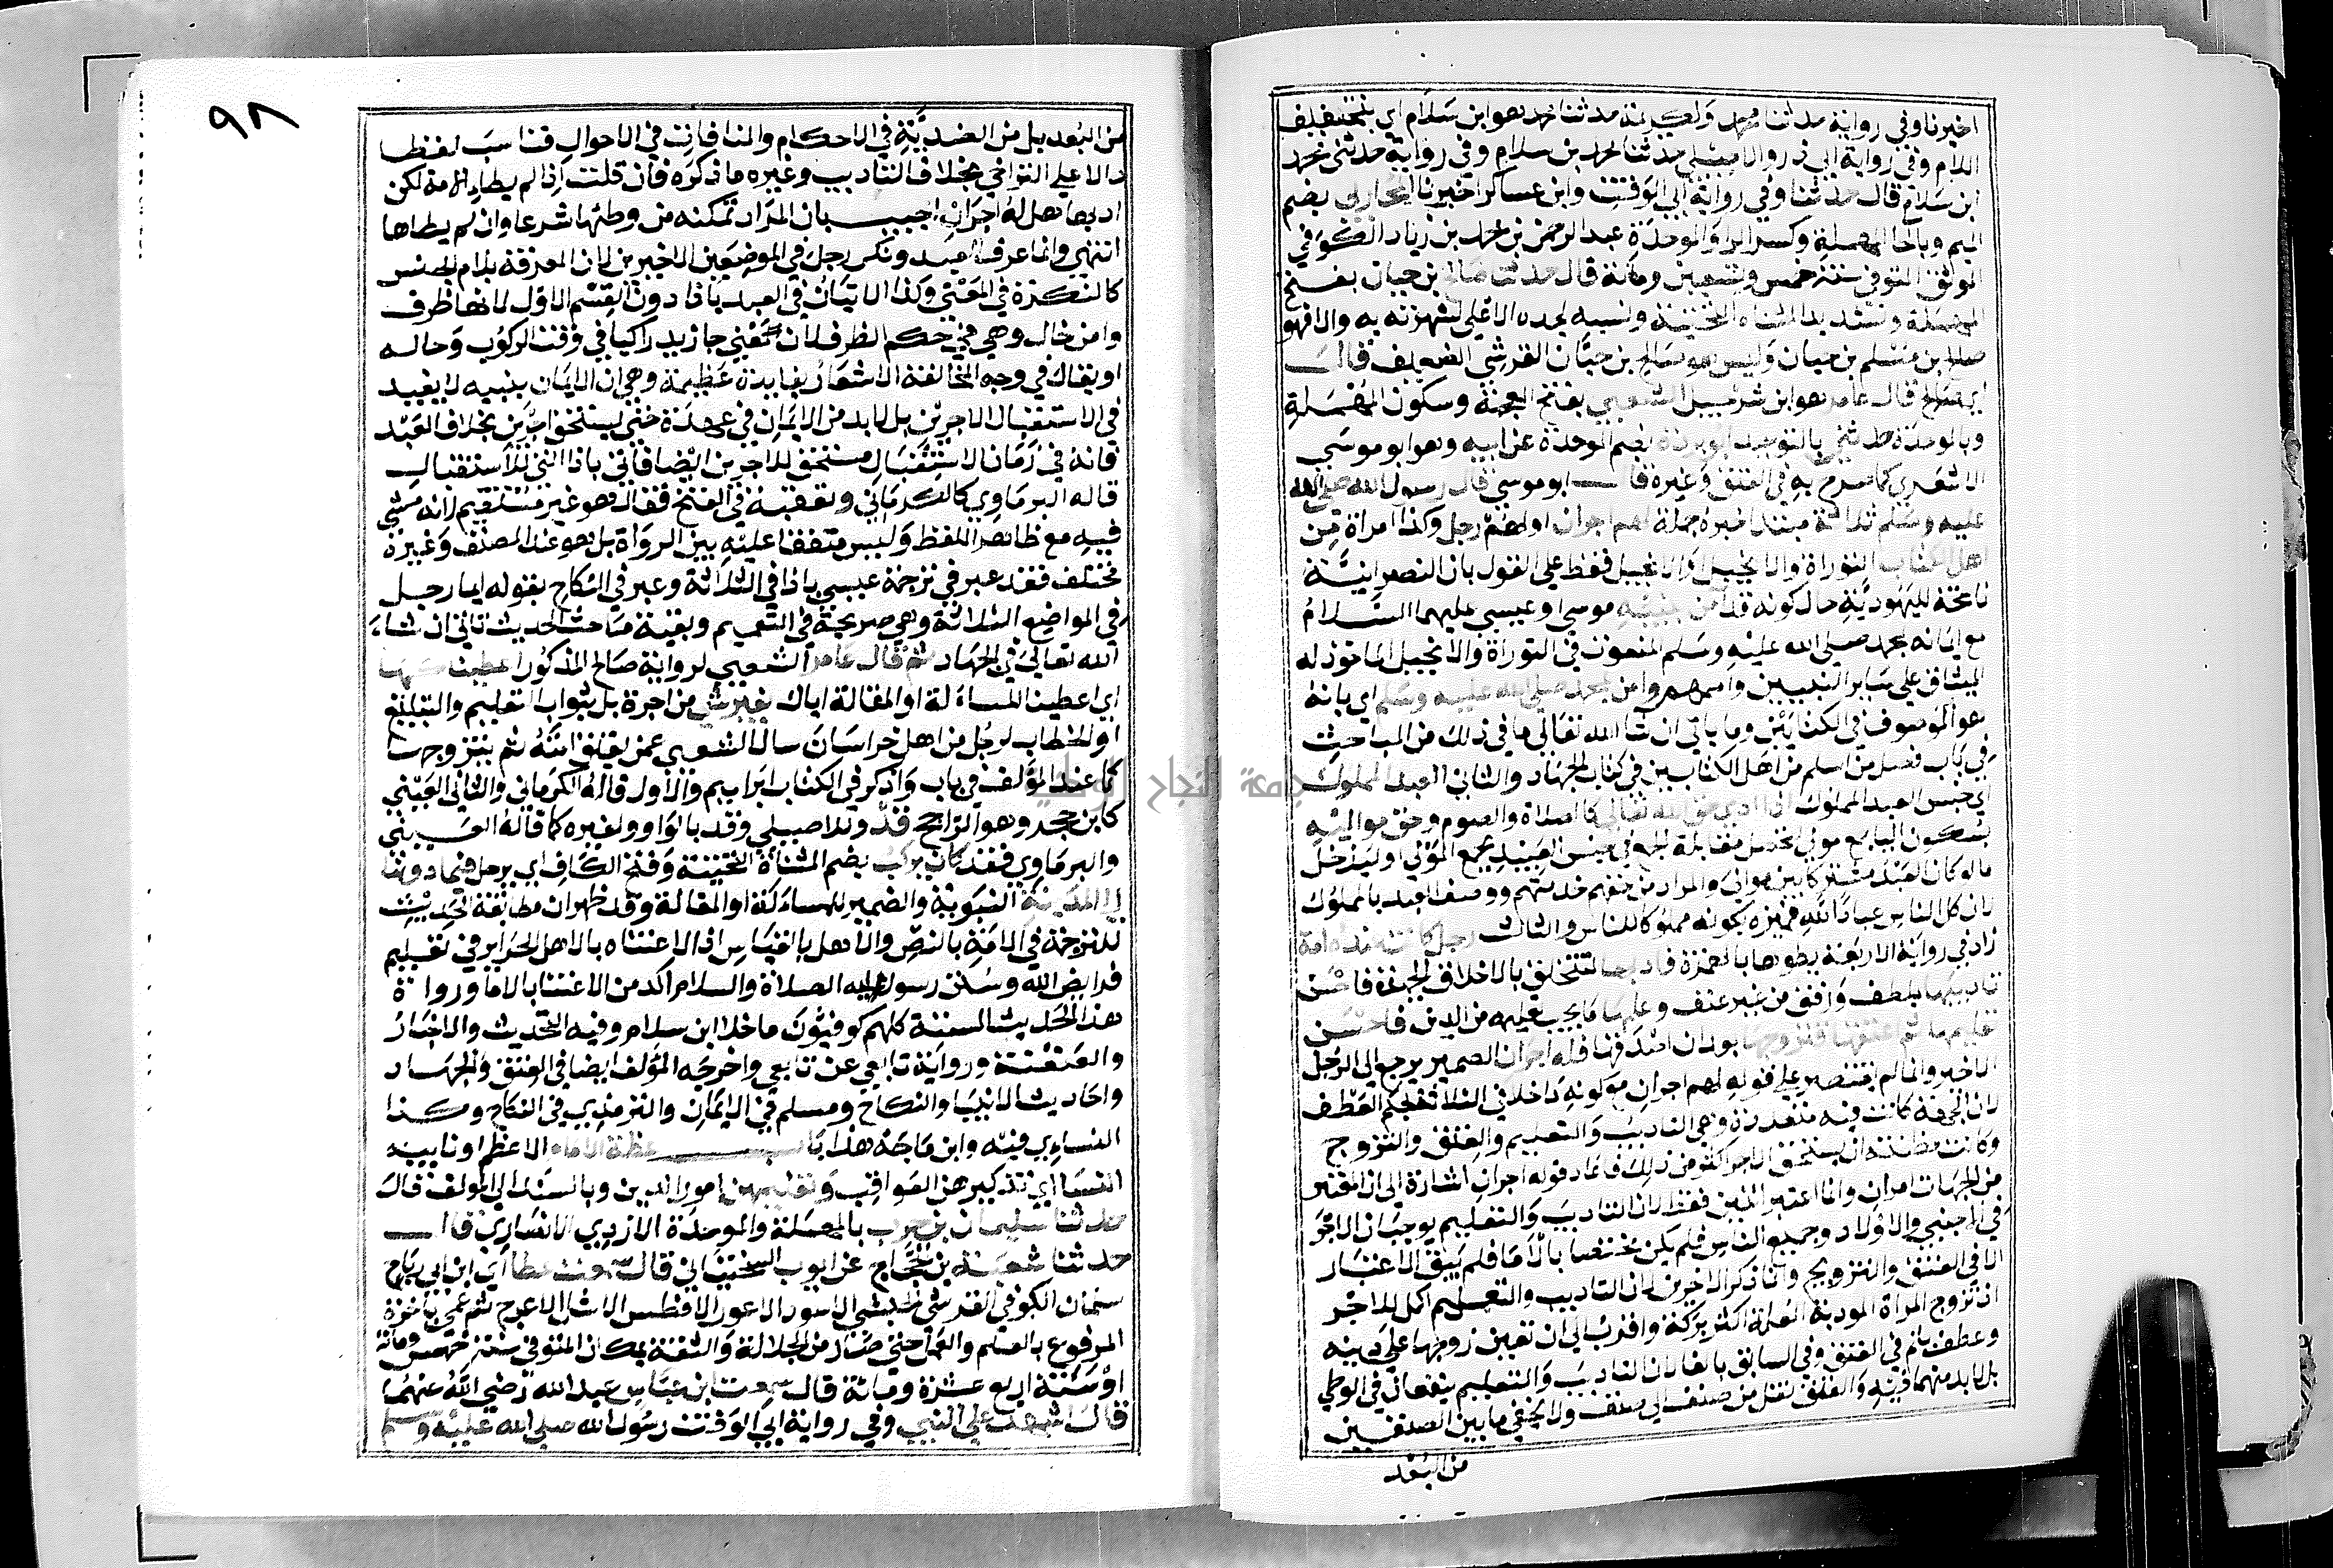 اخبرنا وفي رواية حدثنا محمد ولكريمة حدثنا محمد هو ابن سلام اي بتخفيف
اللام وفي رواية ابي ذر والاصيلي حدثنا محمد بن سلام وفي رواية حدثني محمد
ابن سلام قال حدثنا وفي رواية ابي الوقت وابن عساكر اخبرنا المحاربي بضم
الميم وبالحا المهملة وكسر الرا والموحدة عبد الرحمن بن محمد بن زياد الكوفي
الموثق المتوفي سنة خمس وتسعين ومائة قال حدثنا صالح بن حيان بفتح
المهملة وتشديد المثناه التحتية ونسبه لجده الاعلي لشهرته به والا فهو
صالح بن مسلم بن حيان وليس هو صالح بن حيان القرشي الضعيف قال
اي صالح قال عامر هو ابن شرحبيل الشعبي بفتح المعجمة وسكون المهملة
وبالموحدة حدثني بالتوحيد ابو بردة بضم الموحدة عن ابيه وهو ابو موسي
الاشعري كما صرح به في العتق وغيره قال ابو موسي قال رسول الله صلي الله
عليه وسلم ثلاثة مبتدا خبره جملة لهم اجران اولهم رجل وكذا امراة من
اهل الكتاب التوراة والانجيل او الانجيل فقط علي القول بان النصرانية
ناسخة لليهودية حال كونه قد امن بنبيه موسي او عيسي عليهما السلام
مع ايمانه بمحمد صلي الله عليه وسلم المنعوت في التوراة والانجيل الماخوذ له
الميثاق علي ساير النبيين واممهم وامن بمحمد صلي الله عليه وسلم اي بانه
هو الموصوف في الكتابين وما ياتي ان شا الله تعالي ما في ذلك من المباحث
في باب فضل من اسلم من اهل الكتابين في كتاب الجهاد والثاني العبد المملوك
اي جنس العبد المملوك اذا ادي حق الله تعالي كالصلاة والصوم وحق مواليه
بسكون اليا جمع مولي لتحصل مقابلة الجمع في جنس العبيد بجمع المولي او ليدخل
ما لو كان العبد مشتركا بين موالي والمراد من حقهم خدمتهم ووصف العبد بالمملوك
لان كل الناس عباد الله فميزه بكونه مملوكا للناس والثالث رجل كانت عنده امة
زاد في رواية الاربعة يطوها بالهمزة فادبها لتتخلق بالاخلاق الحميدة فاحسن
تاديبها بلطف ورفق من غير عنف وعلمها ما يجب عليه من الدين فاحسن
تعليمها ثم اعتقها فتزوجها بعد ان اصدقها فله اجران الضمير يرجع الي الرجل
الاخير وانما لم يقتصر علي قوله لهم اجران مع كونه داخلا في الثلاثة بحكم العطف
لان الجهة كانت فيه متعددة وهي التاديب والتعليم والعتق والتزوج
وكانت مظنة ان يستحق الاجر اكثر من ذلك فاعاد قوله اجران اشارة الي ان المعتبر
من الجهات امران وانما اعتبر اثنين فقط لان التاديب والتعليم يوجبان الاجر
في الاجنبي والاولاد وجميع الناس فلم يكن مختصا بالاما فلم يبق الاعتبار
الا في العتق والتزويج وانما ذكر الاخرين لان التاديب والتعليم اكمل للاجر
اذ تزوج المراة المودبة المعلمة اكثر بركة واقرب الي ان تعين زوجها علي دينه
وعطف بثم في العتق وفي السابق بالفا لان التاديب والتعليم ينفعان في الوطي
بل لابد منهما فيه والعتق لنقل من صنف الي صنف ولا يخفي ما بين الصنفين
من البعد
٩٨
من البعد بل من الضدية في الاحكام والمنافات في الاحوال فناسب لفظا
دالا علي التراخي بخلاف التاديب وغيره مما ذكره فان قلت اذا لم يطا الامة لكن
ادبها هل له اجران اجيب بان المراد تمكنه من وطئها شرعا وان لم يطاها
انتهي وانما عرف العبد ونكر رجل في الموضعين الاخيرين لان المعرفة بلام الجنس
كالنكرة في المعني وكذا الاتيان في العبد باذا دون القسم الاول لانها ظرف
وامن حال وهي في حكم الظرف لان معني جا زيد راكبا في وقت الركوب وحاله
او يقال في وجه المخالفة الاشعار بفايدة عظيمة وهي ان الايمان بنبيه لا يفيد
في الاستقبال الاجرين بل لابد من الايمان في عهده حتي يستحق اجرين بخلاف العبد
فانه في زمان الاستقبال مستحق للاجرين ايضا فاتي باذا التي للاستقبال
قاله البرماوي كالكرماني وتعقبه في الفتح فقال هو غير مستقيم لانه مشي
فيه مع ظاهر اللفظ وليس متفقا عليه بين الرواة بل هو عند المصنف وغيره
مختلف فقد عبر في ترجمة عيسي باذا في الثلاثة وعبر في النكاح بقوله ايما رجل
في المواضع الثلاثة وهي صريحة في التعميم وبقية مباحث الحديث تاتي ان شاء
الله تعالي في الجهاد ثم قال عامر الشعبي لرواية صالح المذكور اعطيناكها
اي اعطينا المساءلة او المقالة اياك بغير شي من اجرة بل بثواب التعليم والتبليغ
او الخطاب لرجل من اهل خراسان سال الشعبي عمن يعتق امته ثم يتزوجها
كما عند المؤلف في باب واذكر في الكتاب ابراهيم والاول قاله الكرماني والثاني العيني
كابن حجر وهو الراجح قد وللاصيلي وقد بالواو ولغيره كما قاله العيني
والبرماوي فقد كان يركب بضم المثناة التحتية وفتح الكاف اي يرحل فيما دونها
الي المدينة النبوية والضمير للمساءلة او المقالة وقد ظهر ان مطابقة الحديث
للترجمة في الامة بالنص والاهل بالقياس اذ الاعتناء بالاهل الحراير في تعليم
فرايض الله وسنن رسول الله عليه الصلاة والسلام اكد من الاعتنا بالاما ورواة
هذا الحديث الستة كلهم كوفيون ما خلا ابن سلام وفيه التحديث والاخبار
والعنعنة ورواية تابعي عن تابعي واخرجه المؤلف ايضا في العتق والجهاد
واحاديث الانبيا والنكاح ومسلم في الايمان والترمذي في النكاح وكذا
النساءي فيه وابن ماجه هذا باب عظة الامام الاعظم او نايبه
النسا اي تذكيرهن العواقب وتعليمهن امور الدين وبالسند الي المولف قال
حدثنا سليمان بن حرب بالمهملة والموحدة الازدي الانصاري قال
حدثنا شعبة بن الحجاج عن ايوب السختياني قال سمعت عطا اي ابن ابي رباح
سلمان الكوفي القرشي الحبشي الاسود الاعور الافطس الاشل الاعرج ثم عمي باخرة
المرفوع بالعلم والعمل حتي صار من الجلالة والثقة بمكان المتوفي سنة خمس ومائة
او سنة اربع عشرة ومائة قال سمعت ابن عباس عبد الله رضي الله عنهما
قال اشهد علي النبي وفي رواية ابي الوقت رسول الله صلي الله عليه وسلم
جامعة النجاح الوطنية